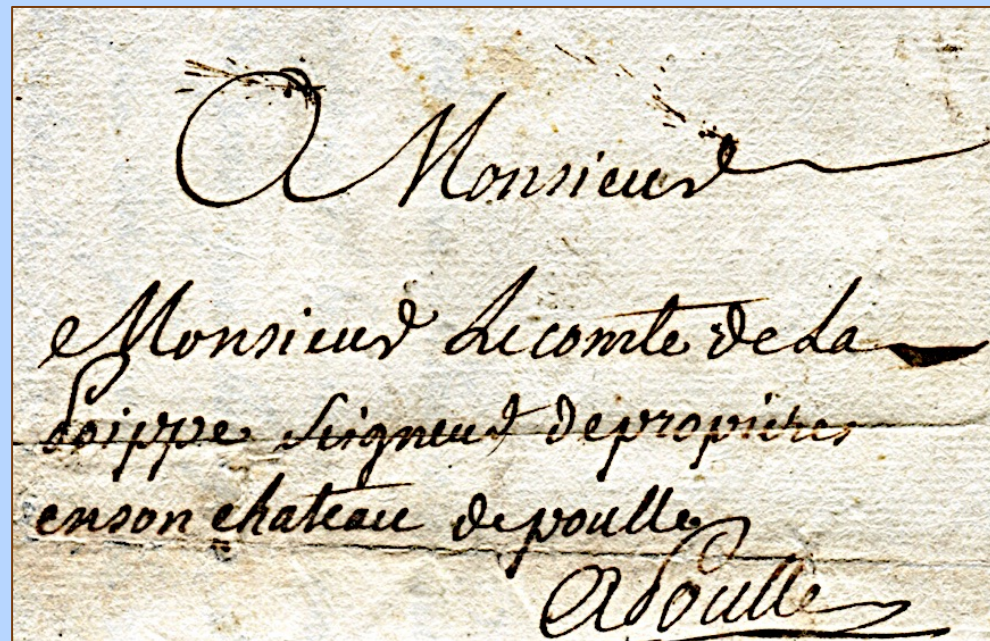 A Monsieur
Monsieur Le comte de La
Poippe Seigneur de propieres
en son chateau de poulle
A Poulle